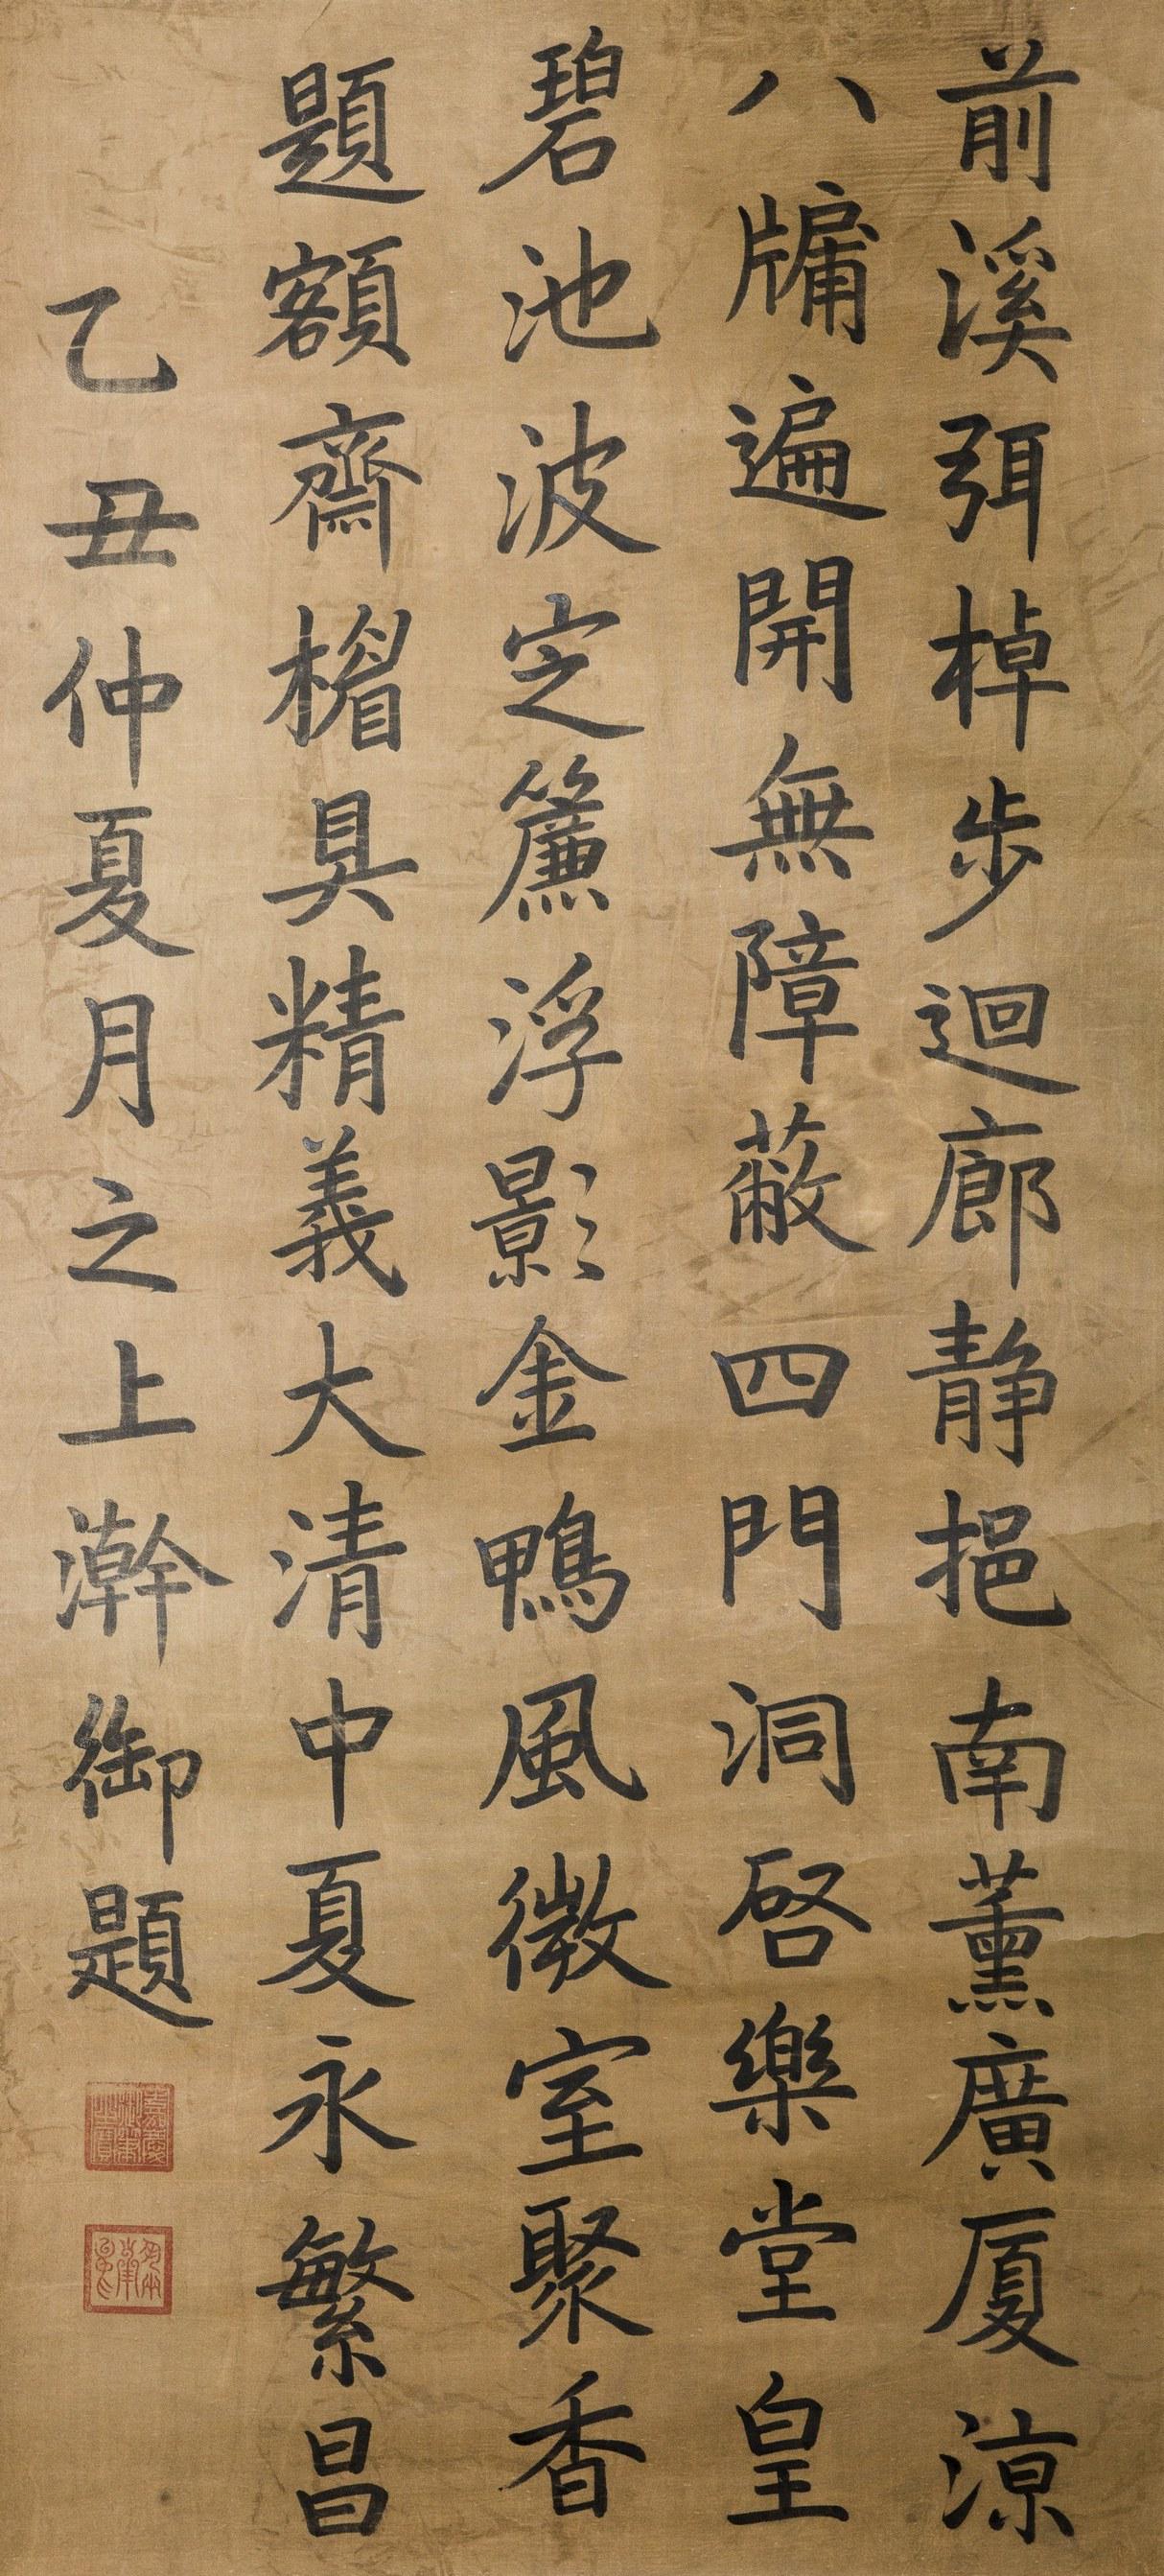 前溪弭棹步迴廊静挹南薰廣厦涼
八牖遍開無障蔽四門洞啓樂堂皇
碧池波定簾浮影金鴨風微室聚香
題額齋楣具精義大清中夏永繁昌
乙丑仲夏月之上澣御題
嘉慶御筆之寶